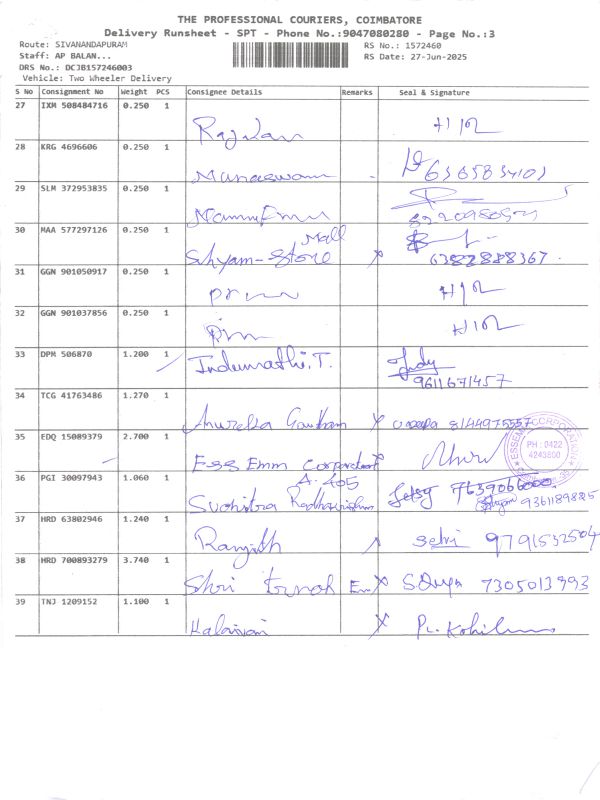 THE PROFESSIONAL COURIERS, COIMBATORE
Delivery Runsheet - SPT - Phone No.:9047080280 - Page No.:3
Route: SIVANANDAPURAM RS No.: 1572460
Staff: AP BALAN... RS Date: 27-Jun-2025
DRS No.: DCJB157246003
Vehicle: Two Wheeler Delivery
S No Consignment No Weight PCS Consignee Details Remarks Seal & Signature
27 IXM 508484716 0.250 1
28 KRG 4696606 0.250 1
Munaswam
29 SLM 372953835 0.250 1
30 MAA 577297126 0.250 1
Mall
Shyam-Store 6382888367.
31 GGN 901050917 0.250 1
32 GGN 901037856 0.250 1
33 DPM 506870 1.200 1
Indumathi.T. Indy
9611671457
34 TCG 41763486 1.270 1
Gautham 8144975557
35 EDQ 15089379 2.700 1
Ess Emm Corporation
ESSEMM CORPORATION
PH : 0422
4243800
36 PGI 30097943 1.060 1
A-405
Suchitra Radhakrishnan 7639066000
9361189885
37 HRD 63802946 1.240 1
Ranjith Selvi 9791532504
38 HRD 700893279 3.740 1
Shri Em 7305013993
39 TNJ 1209152 1.100 1